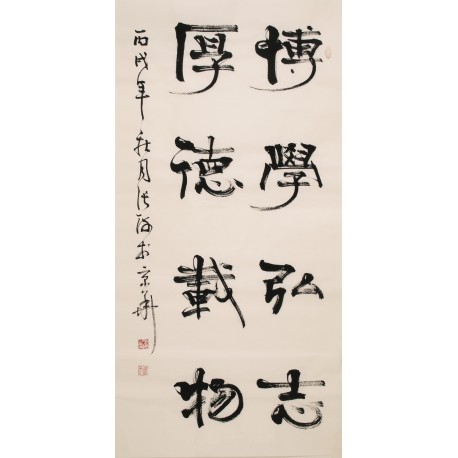 博學弘志
厚德載物
丙戌年秋月於京華